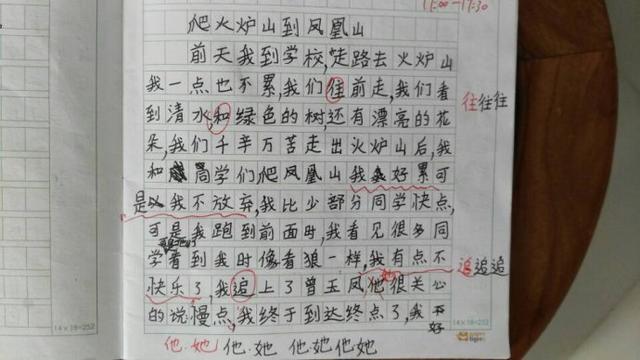 17:00-17:30
爬火炉山到凤凰山
前天我到学校,走路去火炉山
我一点也不累,我们往前走,我们看
往往往
到清水,和绿色的树,还有漂亮的花
朵,我们千辛万苦走出火炉山后,我
和同学们爬凤凰山我好累可
是我不放弃,我比少部分同学快点,
可是我跑到前面时,我看见很多同
学看到我时像看狼一样,我有点不
快乐了,我追上了曾玉凤他很关心
追追追
她
的说慢点,我终于到达终点了,我
好
14×18=252
14×18=252
他·她 他·她 他她他她